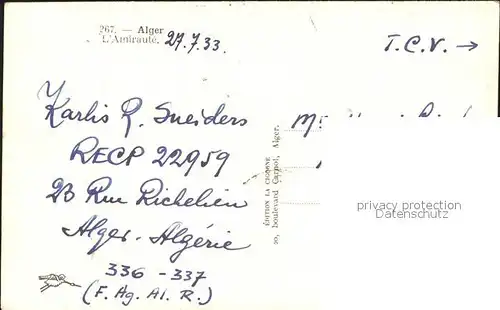 267. — Alger
L'Amirauté.
27.7.33.
T.C.V. →
Karlis R. Sneiders
RECP 22959
23 Rue Richelieu
Alger. Algérie
336 - 337
(F. Ag. Al. R.)
ÉDITION LA CIGOGNE
boulevard Carnot, Alger.
privacy protection
Datenschutz